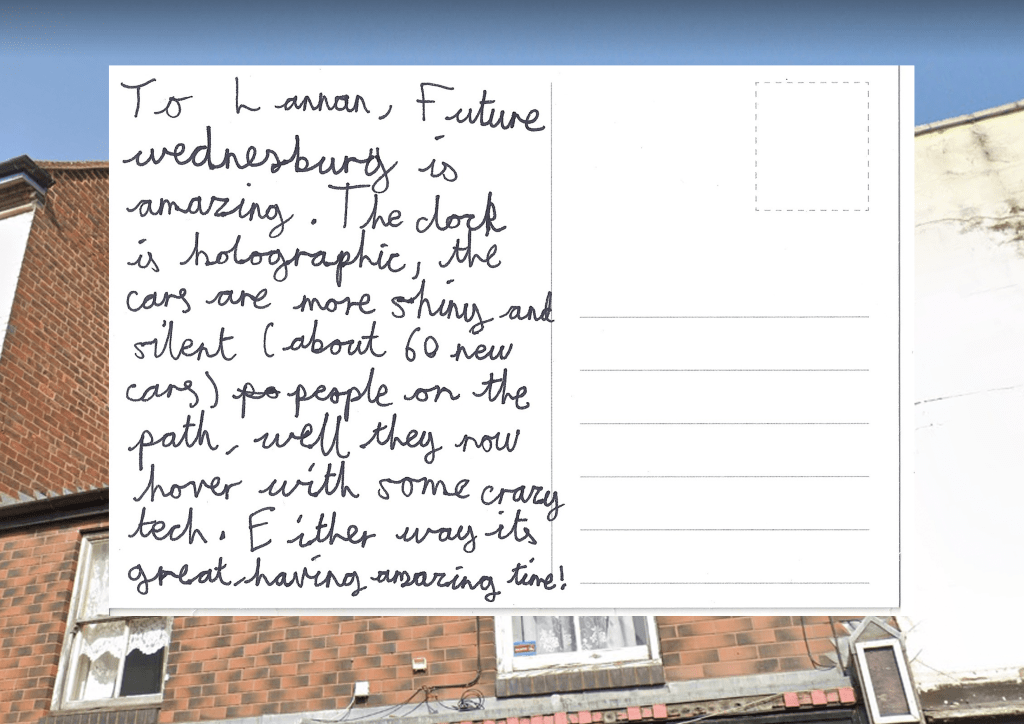 To Lannan, Future
wednesburg is
amazing. The clock
is holographic, the
cars are more shiny and
silent (about 60 new
cars) po people on the
path, well they now
hover with some crazy
tech. Either way its
great, having amazing time!